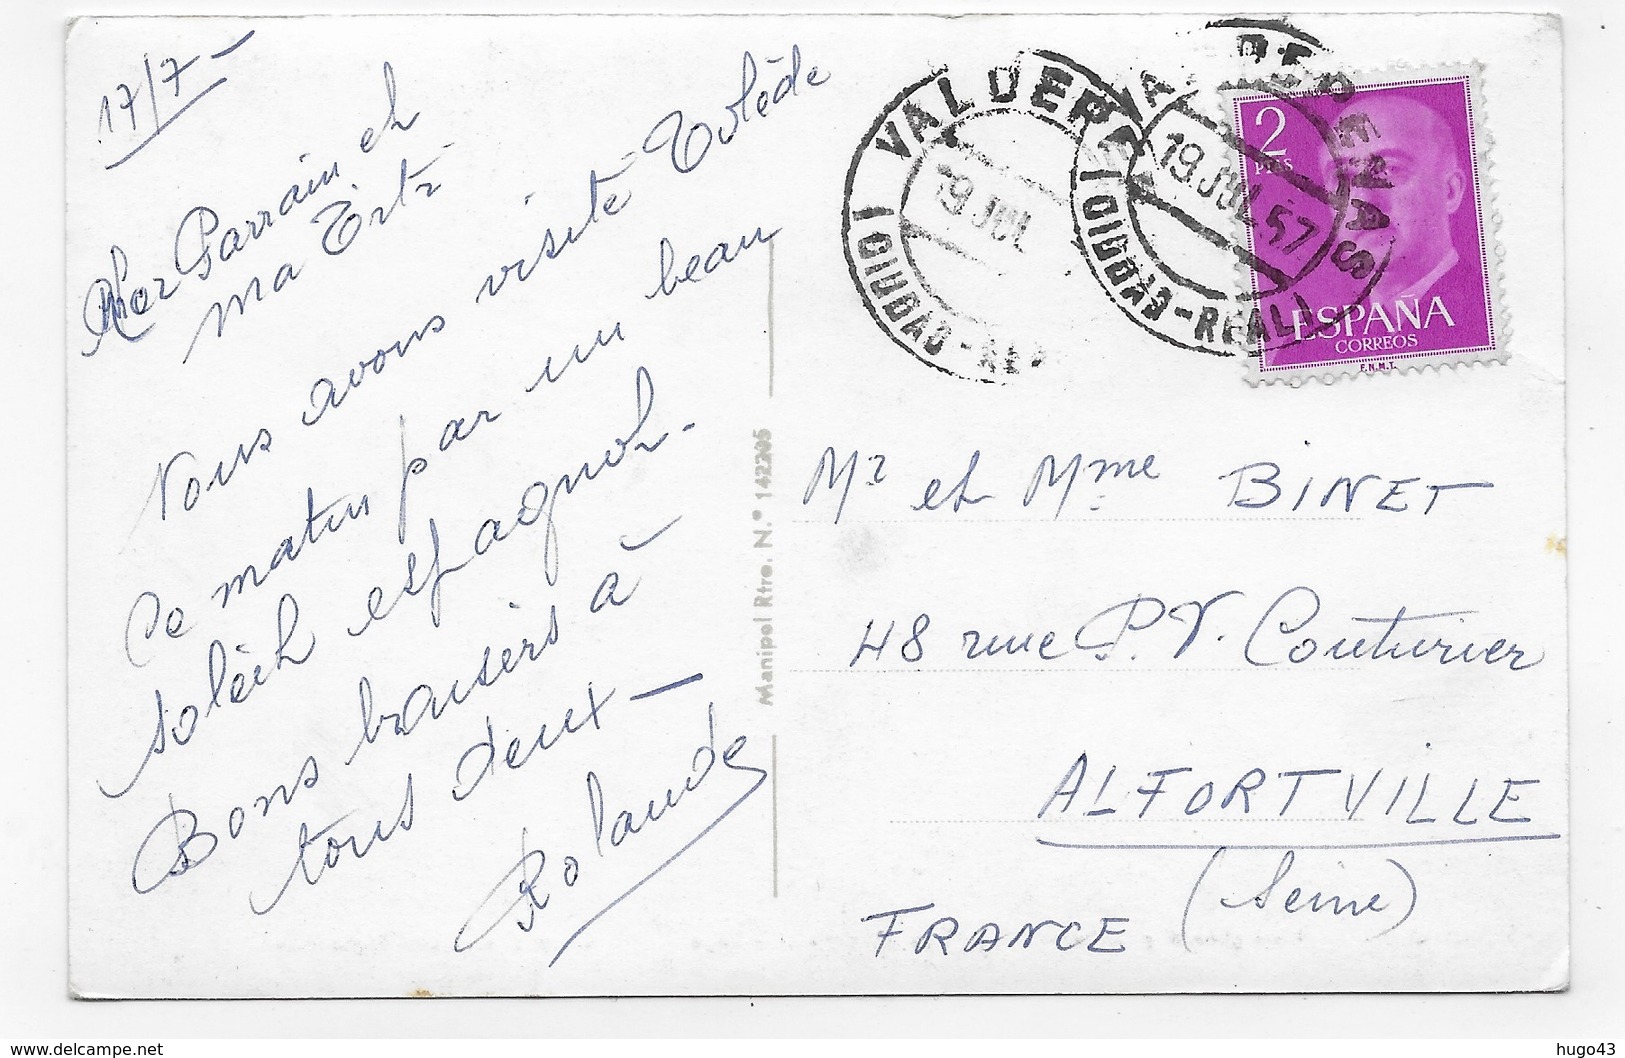 17/7 -
Cher Parrain et
ma Titi
Nous avons visité Tolède
ce matin par un beau
soleil espagnol.
Bons baisers à
tous deux -
Rolande
Manipel Rtro. N.º 142305
VALDEPEÑAS
19 JUL
(CIUDAD-REAL)
VALDEPEÑAS
19 JUL 57
(CIUDAD-REAL)
2
PTS
ESPAÑA
CORREOS
F.N.M.T.
Mr et Mme BINET
48 rue P.V. Couturier
ALFORTVILLE
(Seine)
FRANCE
www.delcampe.net
hugo43